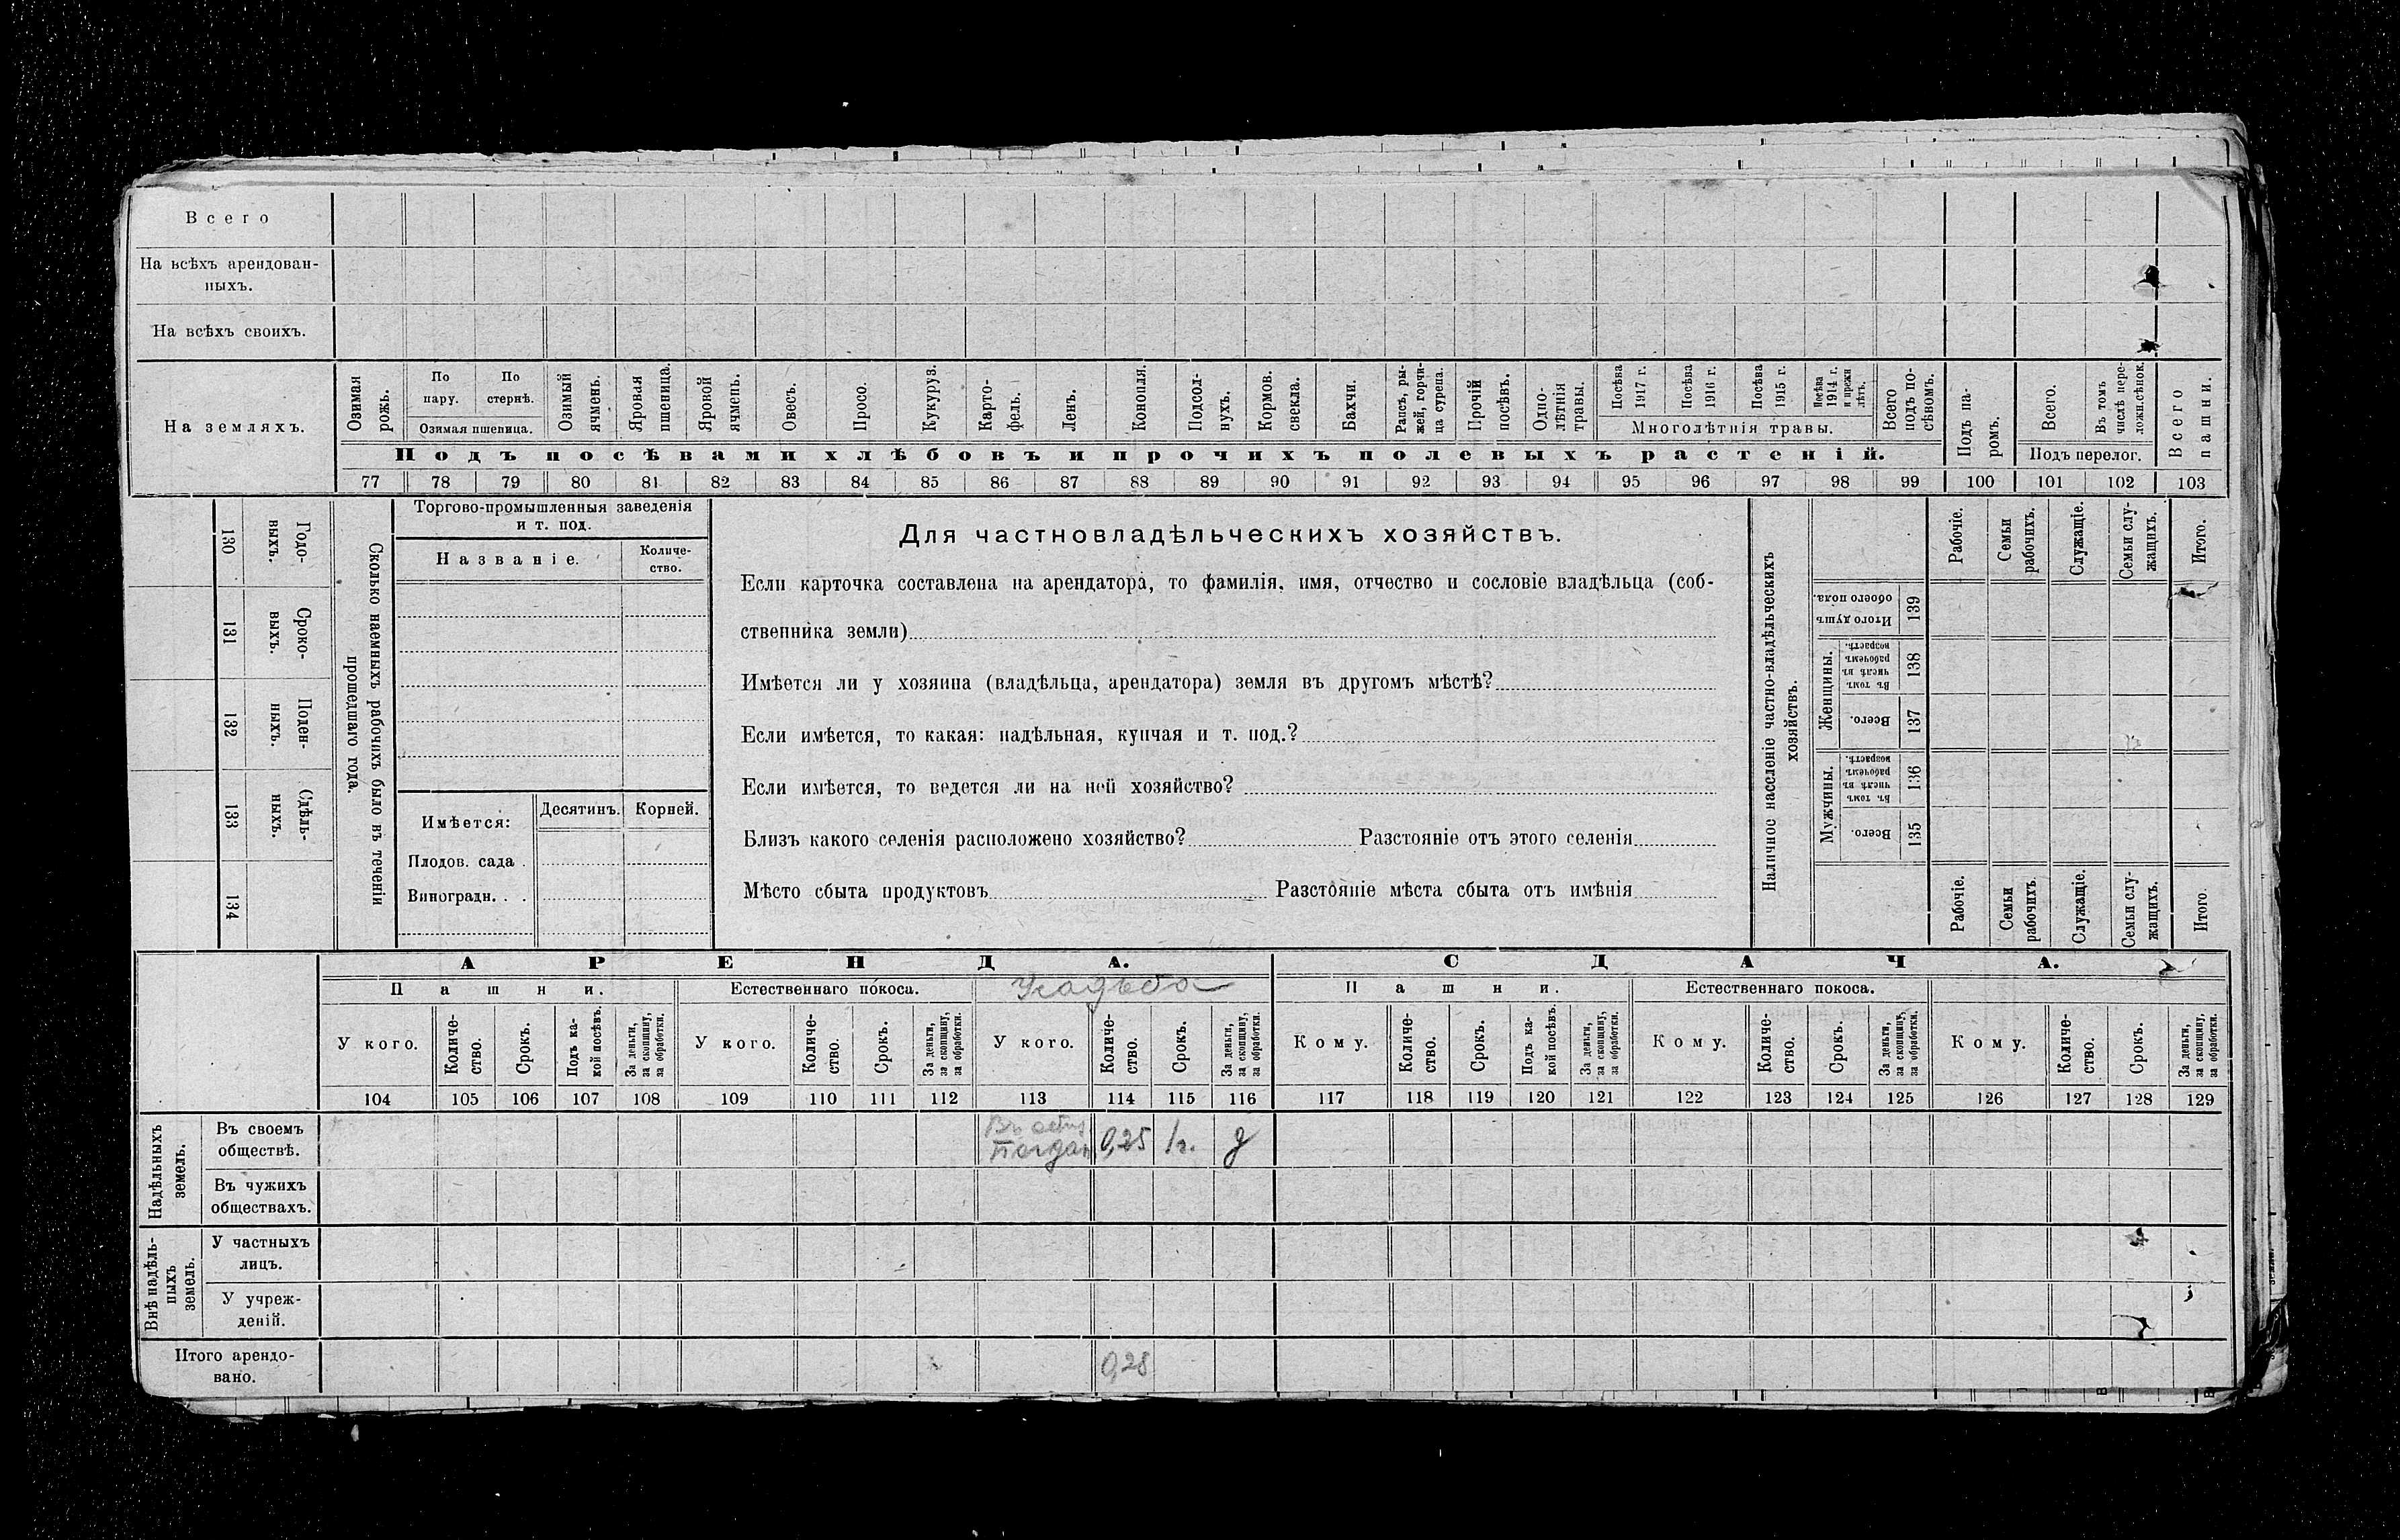 Всего
На всѣхъ арендован-
ныхъ.
На всѣхъ своихъ.
На земляхъ.
Озимая рожь.
По пару.
По стернѣ.
Озимая пшеница.
Озимый ячмень.
Яровая пшеница.
Яровой ячмень.
Овесъ.
Просо.
Кукуруз.
Карто-
фель.
Ленъ.
Конопля.
Подсол-
нухъ.
Кормов. свекла.
Бахчи.
Рапсъ, ры-
жей, горчи-
ца сурепа.
Прочій посѣвъ.
Одно-
лѣтнія травы.
Посѣва 1917 г.
Посѣва 1916 г.
Посѣва 1915 г.
Посѣва 1914 г. и прежн лѣтъ.
Многолѣтнія травы.
Всего подъ по-
сѣвомъ.
Подъ па-
ромъ.
Всего.
Въ томъ числѣ пере-
ложн.сѣнок.
Подъ перелог.
Всего пашни.
Подъ посѣвами хлѣбовъ и прочихъ полевыхъ растеній.
77 78 79 80 81 82 83 84 85 86 87 88 89 90 91 92 93 94 95 96 97 98 99 100 101 102 103
130 Годо-
выхъ.
131 Сроко-
выхъ.
132 Поден-
ныхъ.
133 Сдѣль-
ныхъ.
134
Сколько наемныхъ рабочихъ было въ теченіи
прошедшаго года.
Торгово-промышленныя заведенія
и т. под.
Названіе.
Количе-
ство.
Имѣется:
Десятинъ.
Корней.
Плодов. сада .
Виноградн. . .
Для частновладѣльческихъ хозяйствъ.
Если карточка составлена на арендатора, то фамилія, имя, отчество и сословіе владѣльца (соб-
ственника земли)
Имѣется ли у хозяина (владѣльца, арендатора) земля въ другомъ мѣстѣ?
Если имѣется, то какая: надѣльная, купчая и т. под.?
Если имѣется, то ведется ли на ней хозяйство?
Близъ какого селенія расположено хозяйство? Разстояніе отъ этого селенія
Мѣсто сбыта продуктовъ Разстояніе мѣста сбыта отъ имѣнія
Наличное населеніе частно-владѣльческихъ
хозяйствъ.
Рабочіе.
Семьи рабочихъ.
Служащіе.
Семьи слу-
жащихъ.
Итого.
Итого душъ обоего пола. 139
Женщины.
Въ томъ числѣ въ рабочемъ возрастѣ. 138
Всего. 137
Мужчины.
Въ томъ числѣ въ рабочемъ возрастѣ. 136
Всего. 135
Рабочіе.
Семьи рабочихъ
Служащіе.
Семьи слу-
жащихъ.
Итого
АРЕНДА.
СДАЧА.
Пашни.
Естественнаго покоса.
Усадьба
Пашни.
Естественнаго покоса.
У кого.
Количе-
ство.
Срокъ.
Подъ ка-
кой посѣвъ.
За деньги,
за скопщину,
за обработки.
У кого.
Количе-
ство.
Срокъ.
За деньги,
за скопщину,
за обработки.
У кого.
Количе-
ство.
Срокъ.
За деньги,
за скопщину,
за обработки.
Кому.
Количе-
ство.
Срокъ.
Подъ ка-
кой посѣвъ.
За деньги,
за скопщину,
за обработки.
Кому.
Количе-
ство.
Срокъ.
За деньги,
за скопщину,
за обработки.
Кому.
Количе-
ство.
Срокъ.
За деньги,
за скопщину,
за обработки.
104 105 106 107 108 109 110 111 112 113 114 115 116 117 118 119 120 121 122 123 124 125 126 127 128 129
Надѣльныхъ
земель.
Въ своемъ
обществѣ.
0,25 1г. д
Въ чужихъ
обществахъ.
Внѣ надѣль-
ныхъ
земель.
У частныхъ
лицъ.
У учреж-
деній.
Итого арендо-
вано.
0,25